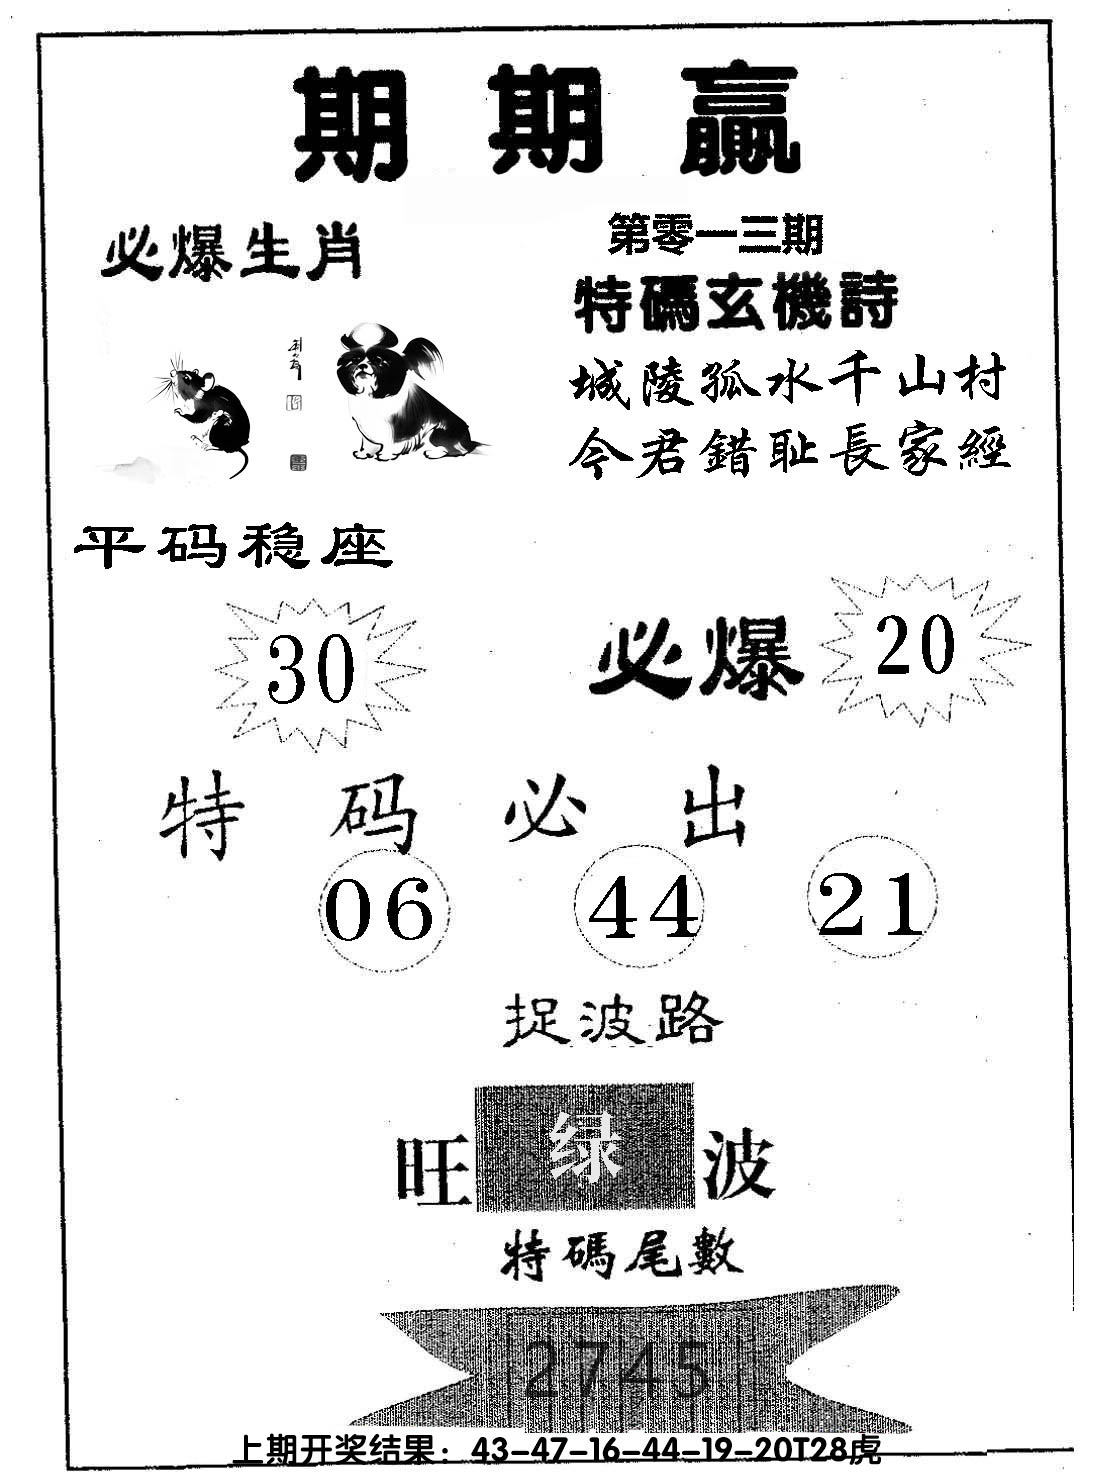 期期赢
必爆生肖
第零一三期
特碼玄機詩
城陵孤水千山村
今君錯耻長家經
平码稳座
30
必爆
20
特码必出
06 44 21
捉波路
旺绿波
特碼尾數
2745
上期开奖结果：43-47-16-44-19-20T28虎